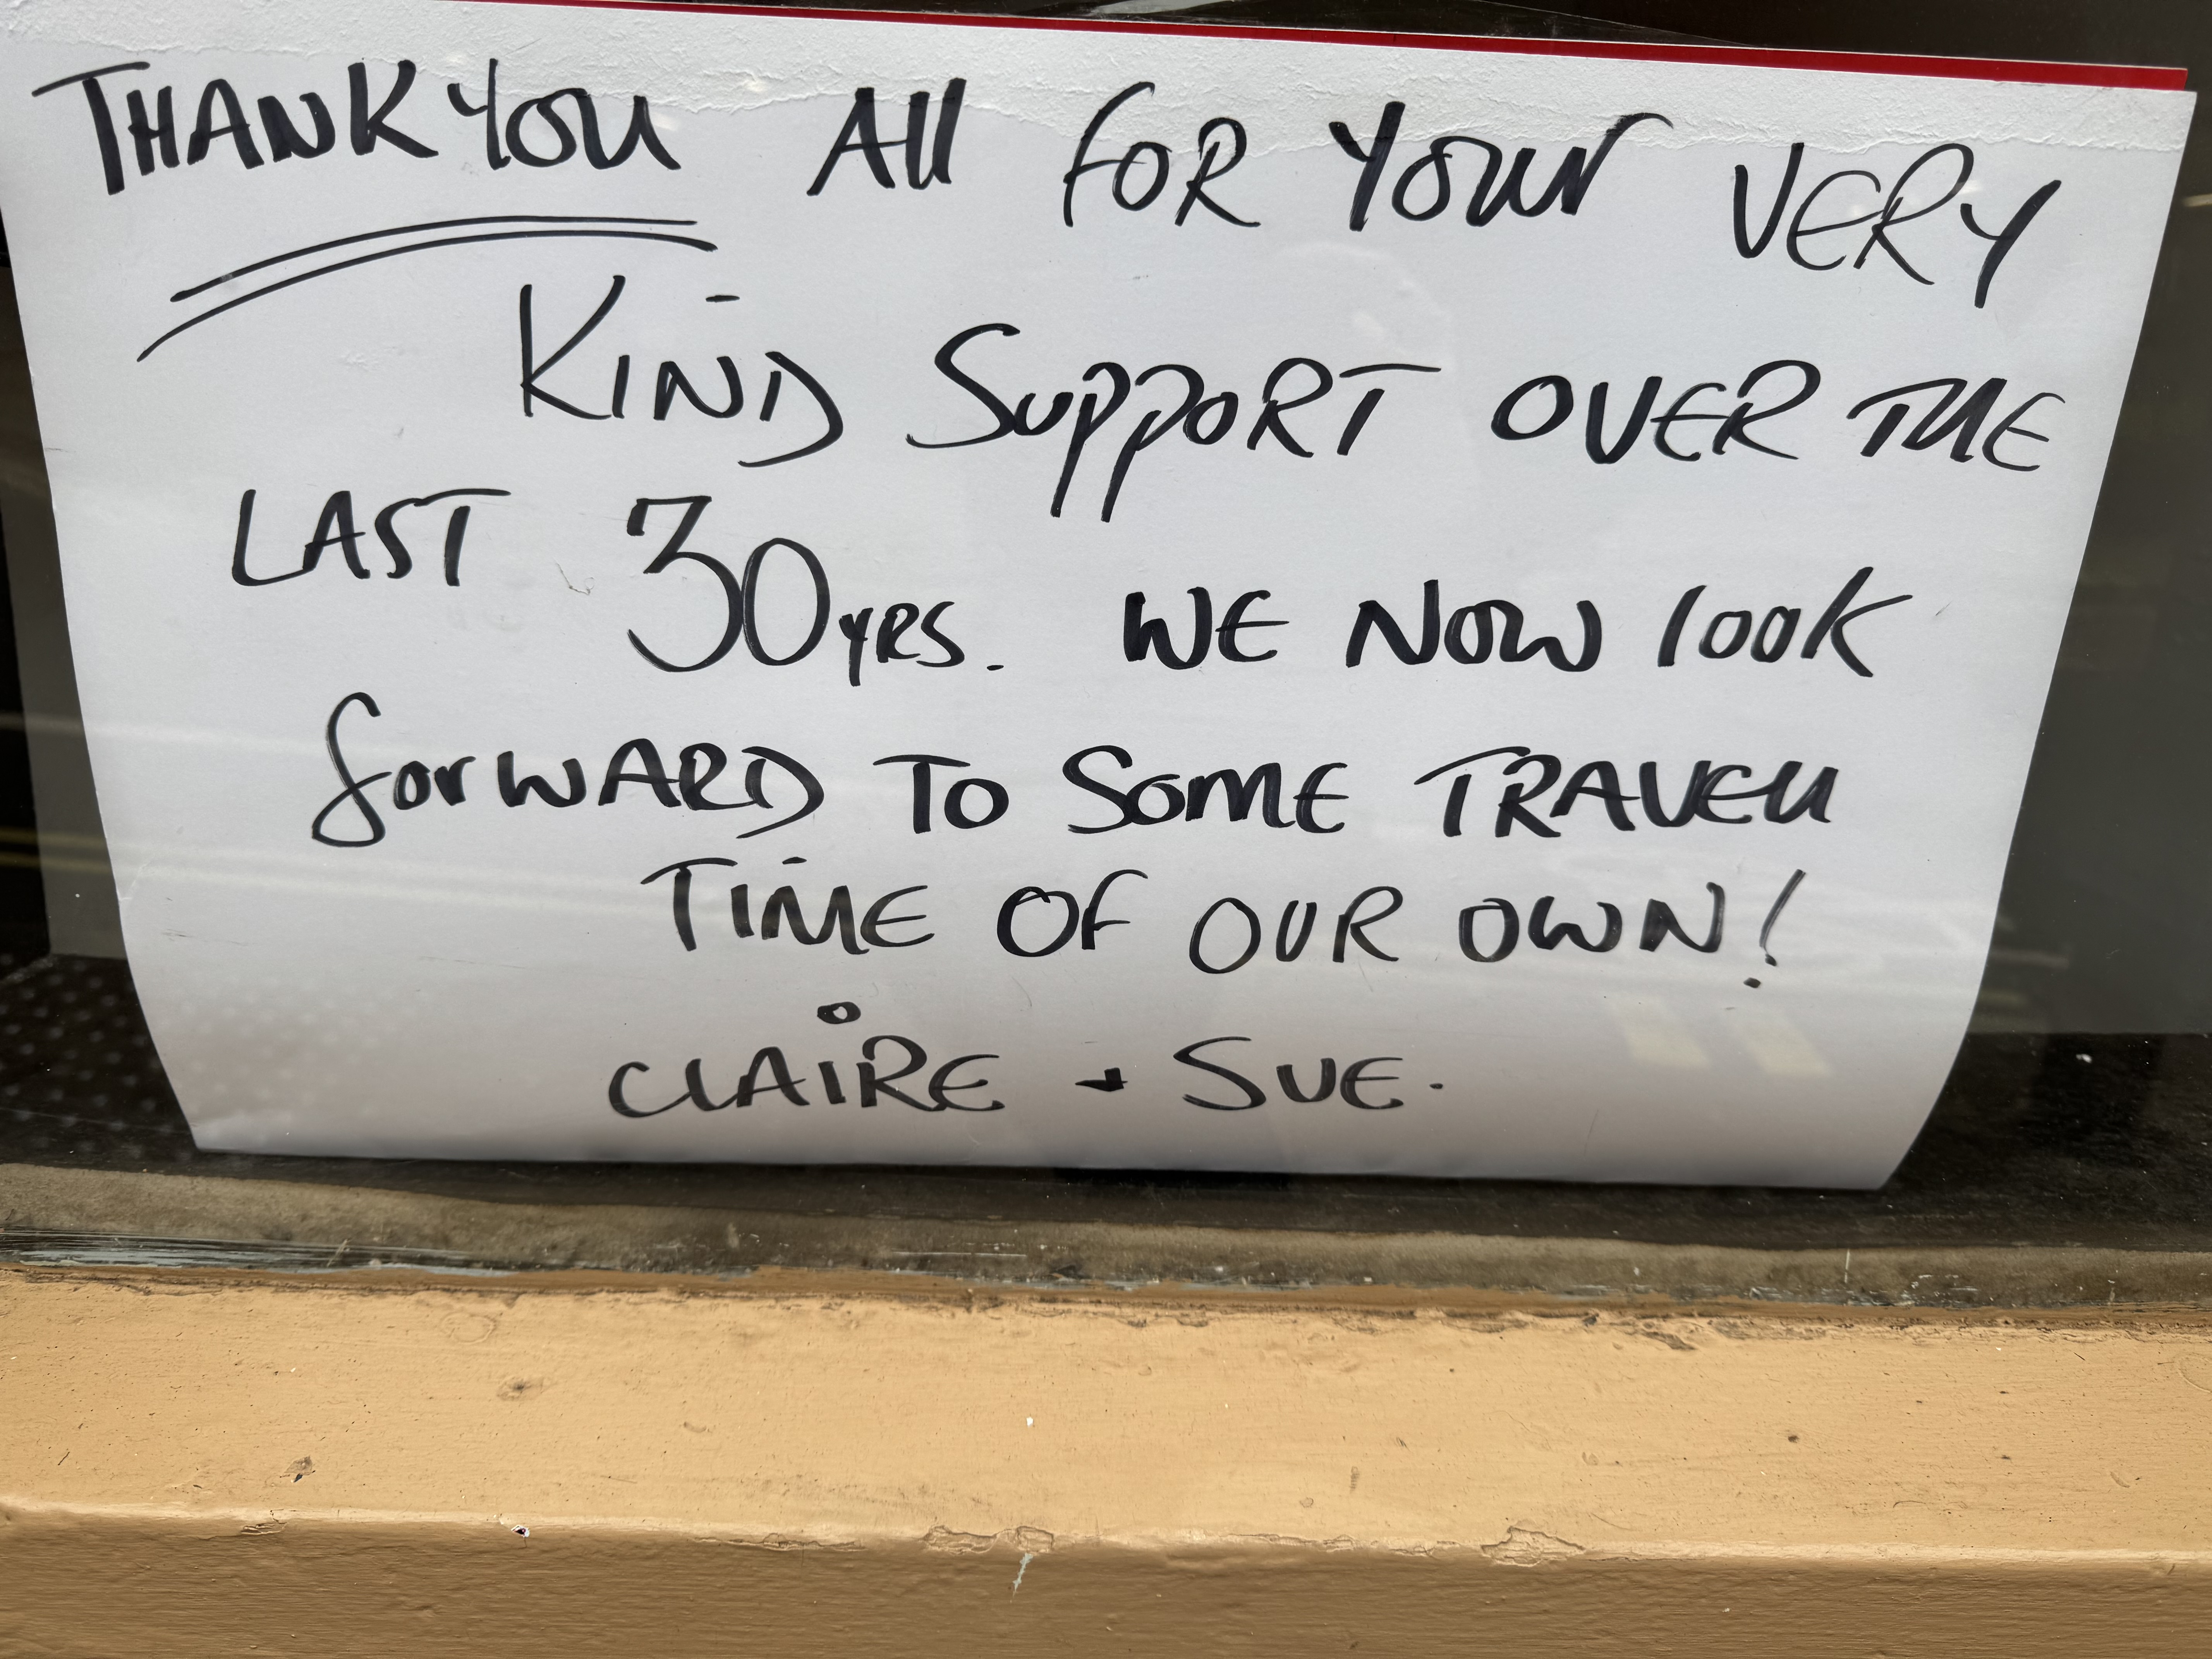 THANKYOU All FOR YOUr VERY
KIND SUppORT OVER THE
LAST 30YRS. WE NOW look
forWARD TO SOME TRAVELL
TIME OF OUR OWN!
CLAIRE + SUE.